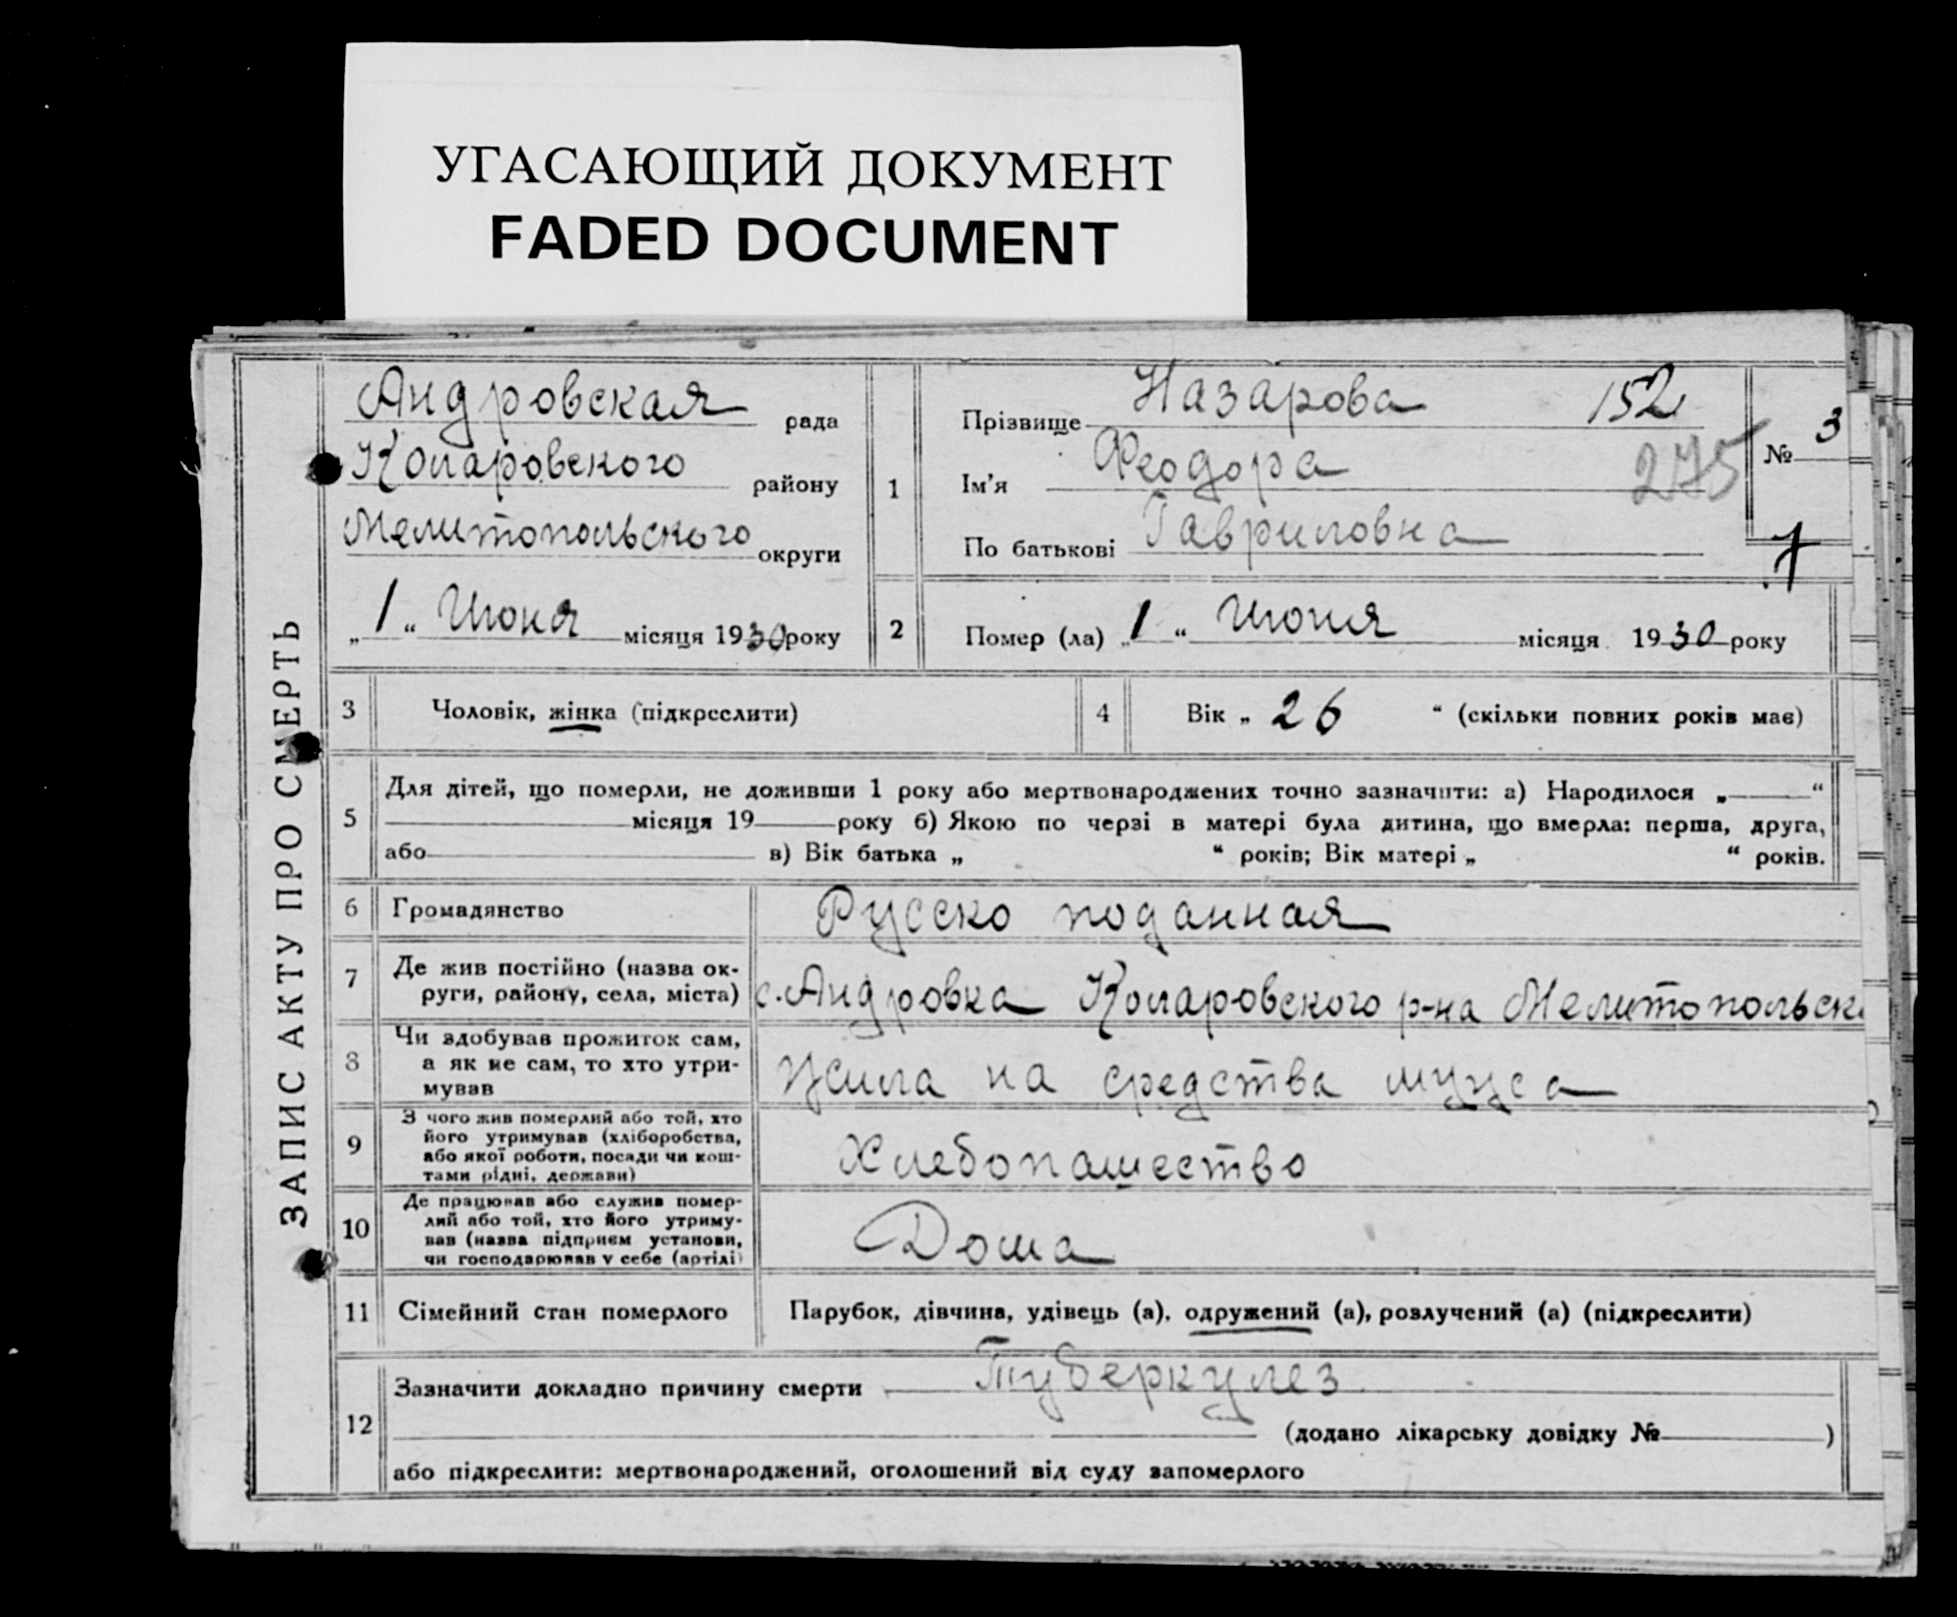 УГАСАЮЩИЙ ДОКУМЕНТ
FADED DOCUMENT
ЗАПИС АКТУ ПРО СМЕРТЬ
Андровская рада
Коларовского району
Мелитопольского округи
„ 1 “ Июня місяця 1930 року
1
Прізвище Назарова 152
Ім'я Феодора 275
По батькові Гавриловна
№ 3
7
2 Помер (ла) „ 1 “ Июня місяця 1930 року
3 Чоловік, жінка (підкреслити)
4 Вік „ 26 “ (скільки повних років має)
5 Для дітей, що померли, не доживши 1 року або мертвонароджених точно зазначити: а) Народилося „ “
місяця 19 року б) Якою по черзі в матері була дитина, що вмерла: перша, друга,
або в) Вік батька „ “ років; Вік матері „ “ років.
6 Громадянство Русско поданная
7 Де жив постійно (назва ок-
руги, району, села, міста) с. Андровка Коларовского р-на Мелитопольск
8 Чи здобував прожиток сам,
а як не сам, то хто утри-
мував Жила на средства мужа
9 З чого жив померлий або той, хто
його утримував (хліборобства,
або якої роботи, посади чи кош-
тами рідні, держави) Хлебопашество
10 Де працював або служив помер-
лий або той, хто його утриму-
вав (назва підприєм установи,
чи господарював у себе (артілі) Дома
11 Сімейний стан померлого Парубок, дівчина, удівець (а), одружений (а), розлучений (а) (підкреслити)
12 Зазначити докладно причину смерти Туберкулез
(додано лікарську довідку № )
або підкреслити: мертвонароджений, оголошений від суду запомерлого